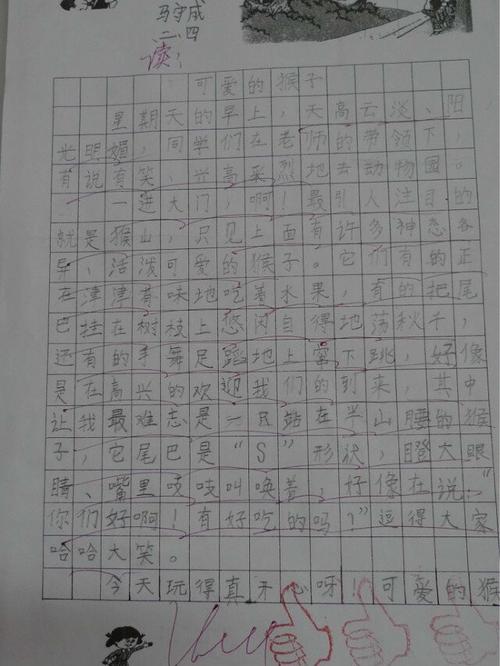 马守成
二、四
读！
可爱的猴子
星期天的早上，天高云淡、阳
光明媚，同学们在老师的带领下，
有说有笑、兴高采烈地去动物园。
一进大门，啊！最引人注目的
就是猴山，只见上面有许多神态各
异、活泼可爱的猴子。它们有的正
在津津有味地吃着水果，有的把尾
巴挂在树枝上悠闲自得地荡秋千，
还有的手舞足蹈地上窜下跳，好像
是在高兴的欢迎我们的到来，其中
让我最难志是一只站在半山腰的猴
子，它尾巴是“S”形状，瞪大眼
睛、嘴里吱吱叫唤着，好像在说：“
你们好啊！有好吃的吗？”逗得大家
哈哈大笑。
今天玩得真开心呀！可爱的猴